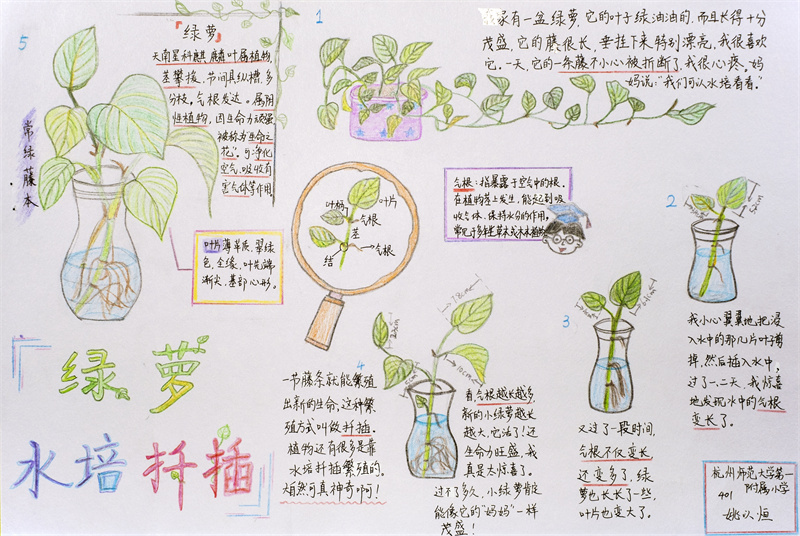 5
「绿萝」
天南星科麒麟叶属植物
茎攀援，节间具纵槽，多
分枝，气根发达。属阴
性植物，因生命力顽强
被称为“生命之
花”。可净化
空气，吸收有
害气体等作用
常绿藤本
叶片薄革质，翠绿
色，全缘，叶先端
渐尖，基部心形。
1
我家有一盆绿萝，它的叶子绿油油的，而且长得十分
茂盛，它的藤很长，垂挂下来，特别漂亮，我很喜欢
它。一天，它的一条藤不小心被折断了，我很心疼，妈
妈说：“我们可以水培看看。”
叶柄
叶片
气根
茎
气根
结
气根：指暴露于空气中的根。
在植物茎上发生，能起到吸
收气体、保持水分的作用，
常见于多年生草本或木本植物
2
我小心翼翼地把浸
入水中的那几片叶子剪
掉，然后插入水中，
过了一二天，我惊喜
地发现水中的气根
变长了。
3
又过了一段时间，
气根不仅变长
还变多了，绿
萝也长长了一些，
叶片也变大了。
4
看，气根越长越多，
新的小绿萝越长
越大，它活了！还
生命力旺盛，我
真是太惊喜了。
过不了多久，小绿萝肯定
能像它的“妈妈”一样
茂盛！
一节藤条就能繁殖
出新的生命，这种繁
殖方式叫做扦插。
植物还有很多是靠
水培扦插繁殖的，
大自然可真神奇啊！
绿萝
水培扦插
杭州师范大学第一
附属小学
401
姚以恒